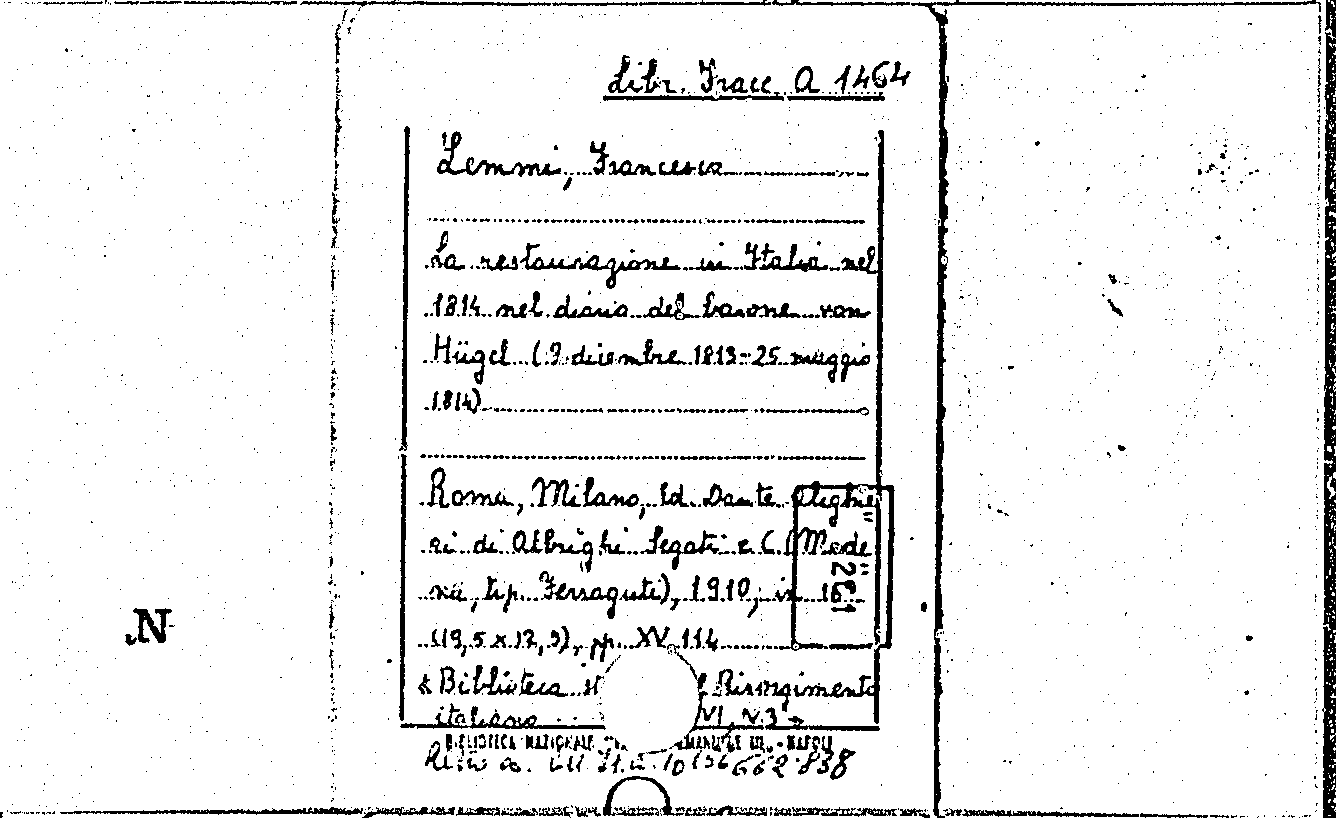 Libr. Fracc. A 1464
Lemmi, Francesco
La restaurazione in Italia nel
1814 nel diario del barone von
Hügel (9 diciembre 1813-25 maggio
1814)
Roma, Milano, Ed. Dante Alighie
ri di Albrighi Segati e C. (Mode
na, tip. Ferraguti), 1910, in 16°
(19,5 x 12,9), pp. XV, 114
« Biblioteca st l Risorgimento
italiano VI, N. 3 »
BIBLIOTECA NAZIONALE EMANUELE III. - NAPOLI
662.838
N